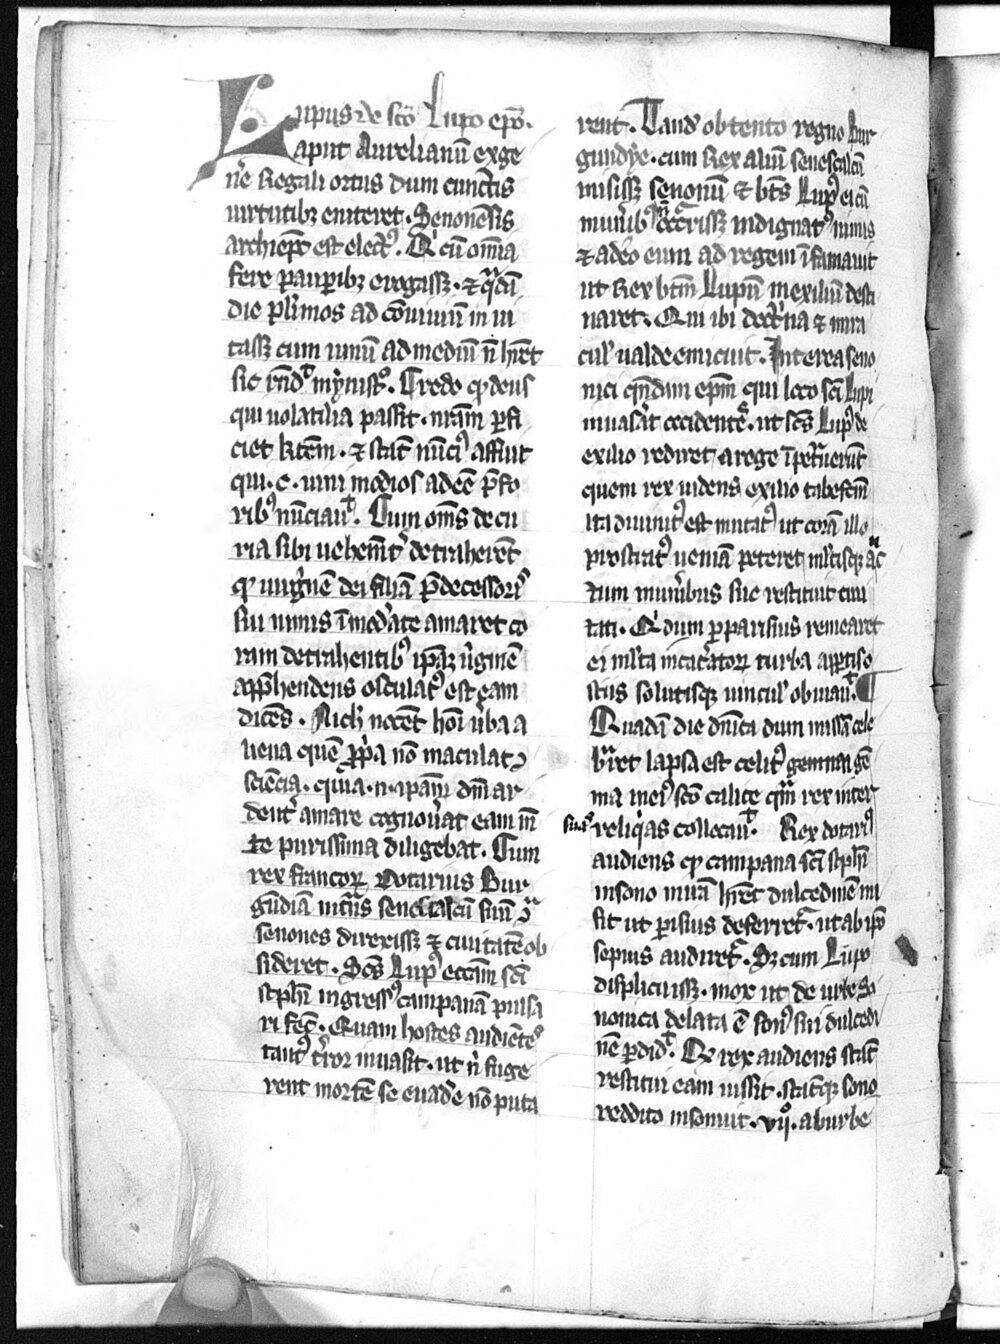 Lupus de sco Lupo epo.
aput Aurelianū ex ge
ne regali ortus dum cunctis
uirtutibʒ eniteret. Senonēsis
archiepc est elect9. Q cū omīa
fere paupibʒ erogassʒ. ⁊ qdā
die plimos ad cōuiuiū in ui
tassʒ cum uinū ad mediū nō hret
sic rndit mynistro. Credo qꝫ deus
qui uolatilia passit. nram perfi
ciet kitem. ⁊ stat nūci9 affuit
qui .c. uini modios adeē pro fo
rib9 nūciauit. Cum oms de cu
ria sibi uehemter detraherēt
qꝫ uirginē dei filiā predecessoris
sui nimis īmodate amaret co
ram detrahentib9 ipam uginē
apphendens osculat9 est eam
dicēs. Nich nocēt hoi uba a
liena quē ppa nō maculat con
sciēcia. quia .n. ipam dm ar
denter amare cognouat eam in
te purissima diligebat. Cum
rex francorꝝ Dotarius Bur
gūdiā intns senescalcū suū cōtra
senones direxissʒ ⁊ ciuitatē ob
sideret. Scs Lup9 eccam sci
stephi ingress9 campanā pulsa
ri fec. Quam hostes audiētes
tant9 tror inuasit. ut ni fuge
rent mortē se euade nō puta
rent. Tand obtento regno bur
gundye. cum rex aliū senescalcū
misissʒ senonū ⁊ bts Lup9 ei cū
munib9 nō occrrissʒ indignat9 nimis
⁊ adeo eum ad regem īfamauit
ut rex btm Lupū in exiliū desti
naret. Qui ibi doctna ⁊ mira
cul ualde emicuit. Interea seno
nici qndam epm qui loco sci Lupi
inuasāt occidentes. ut scs Lup9 de
exilio rediret a rege īpetuerūt
quem rex uidens exilio tabefcm
ita diuinit9 est mutat9 ut corā illo
prostrat9 ueniā peteret mltisqꝫ ac
tum munibus sue restituit ciui
tati. Q dum p parisius remearet
ei mlta incatorꝝ turba aptis o
stiis solutisqꝫ uincul obuiauit.
Quadā die dnica dum missā cele
bret lapsa est celit9 gemma gē
ma inei9 sco calice qm rex inter
suas reliqias collocauit. Rex Dotari9
audiens qꝫ campana sci stephi
in sono mirā hret dulcedinē mi
sit ut parisius deferretur. ut ab ipo
sepius audiret. Sʒ cum Lupo
displicuissʒ. mox ut de urbe se
nonica delata ē son9 sui dulcedi
nē pdidit. Q rex audiens stat
restitui eam iussit. statqꝫ sono
reddito insonuit. vijo. ab urbe